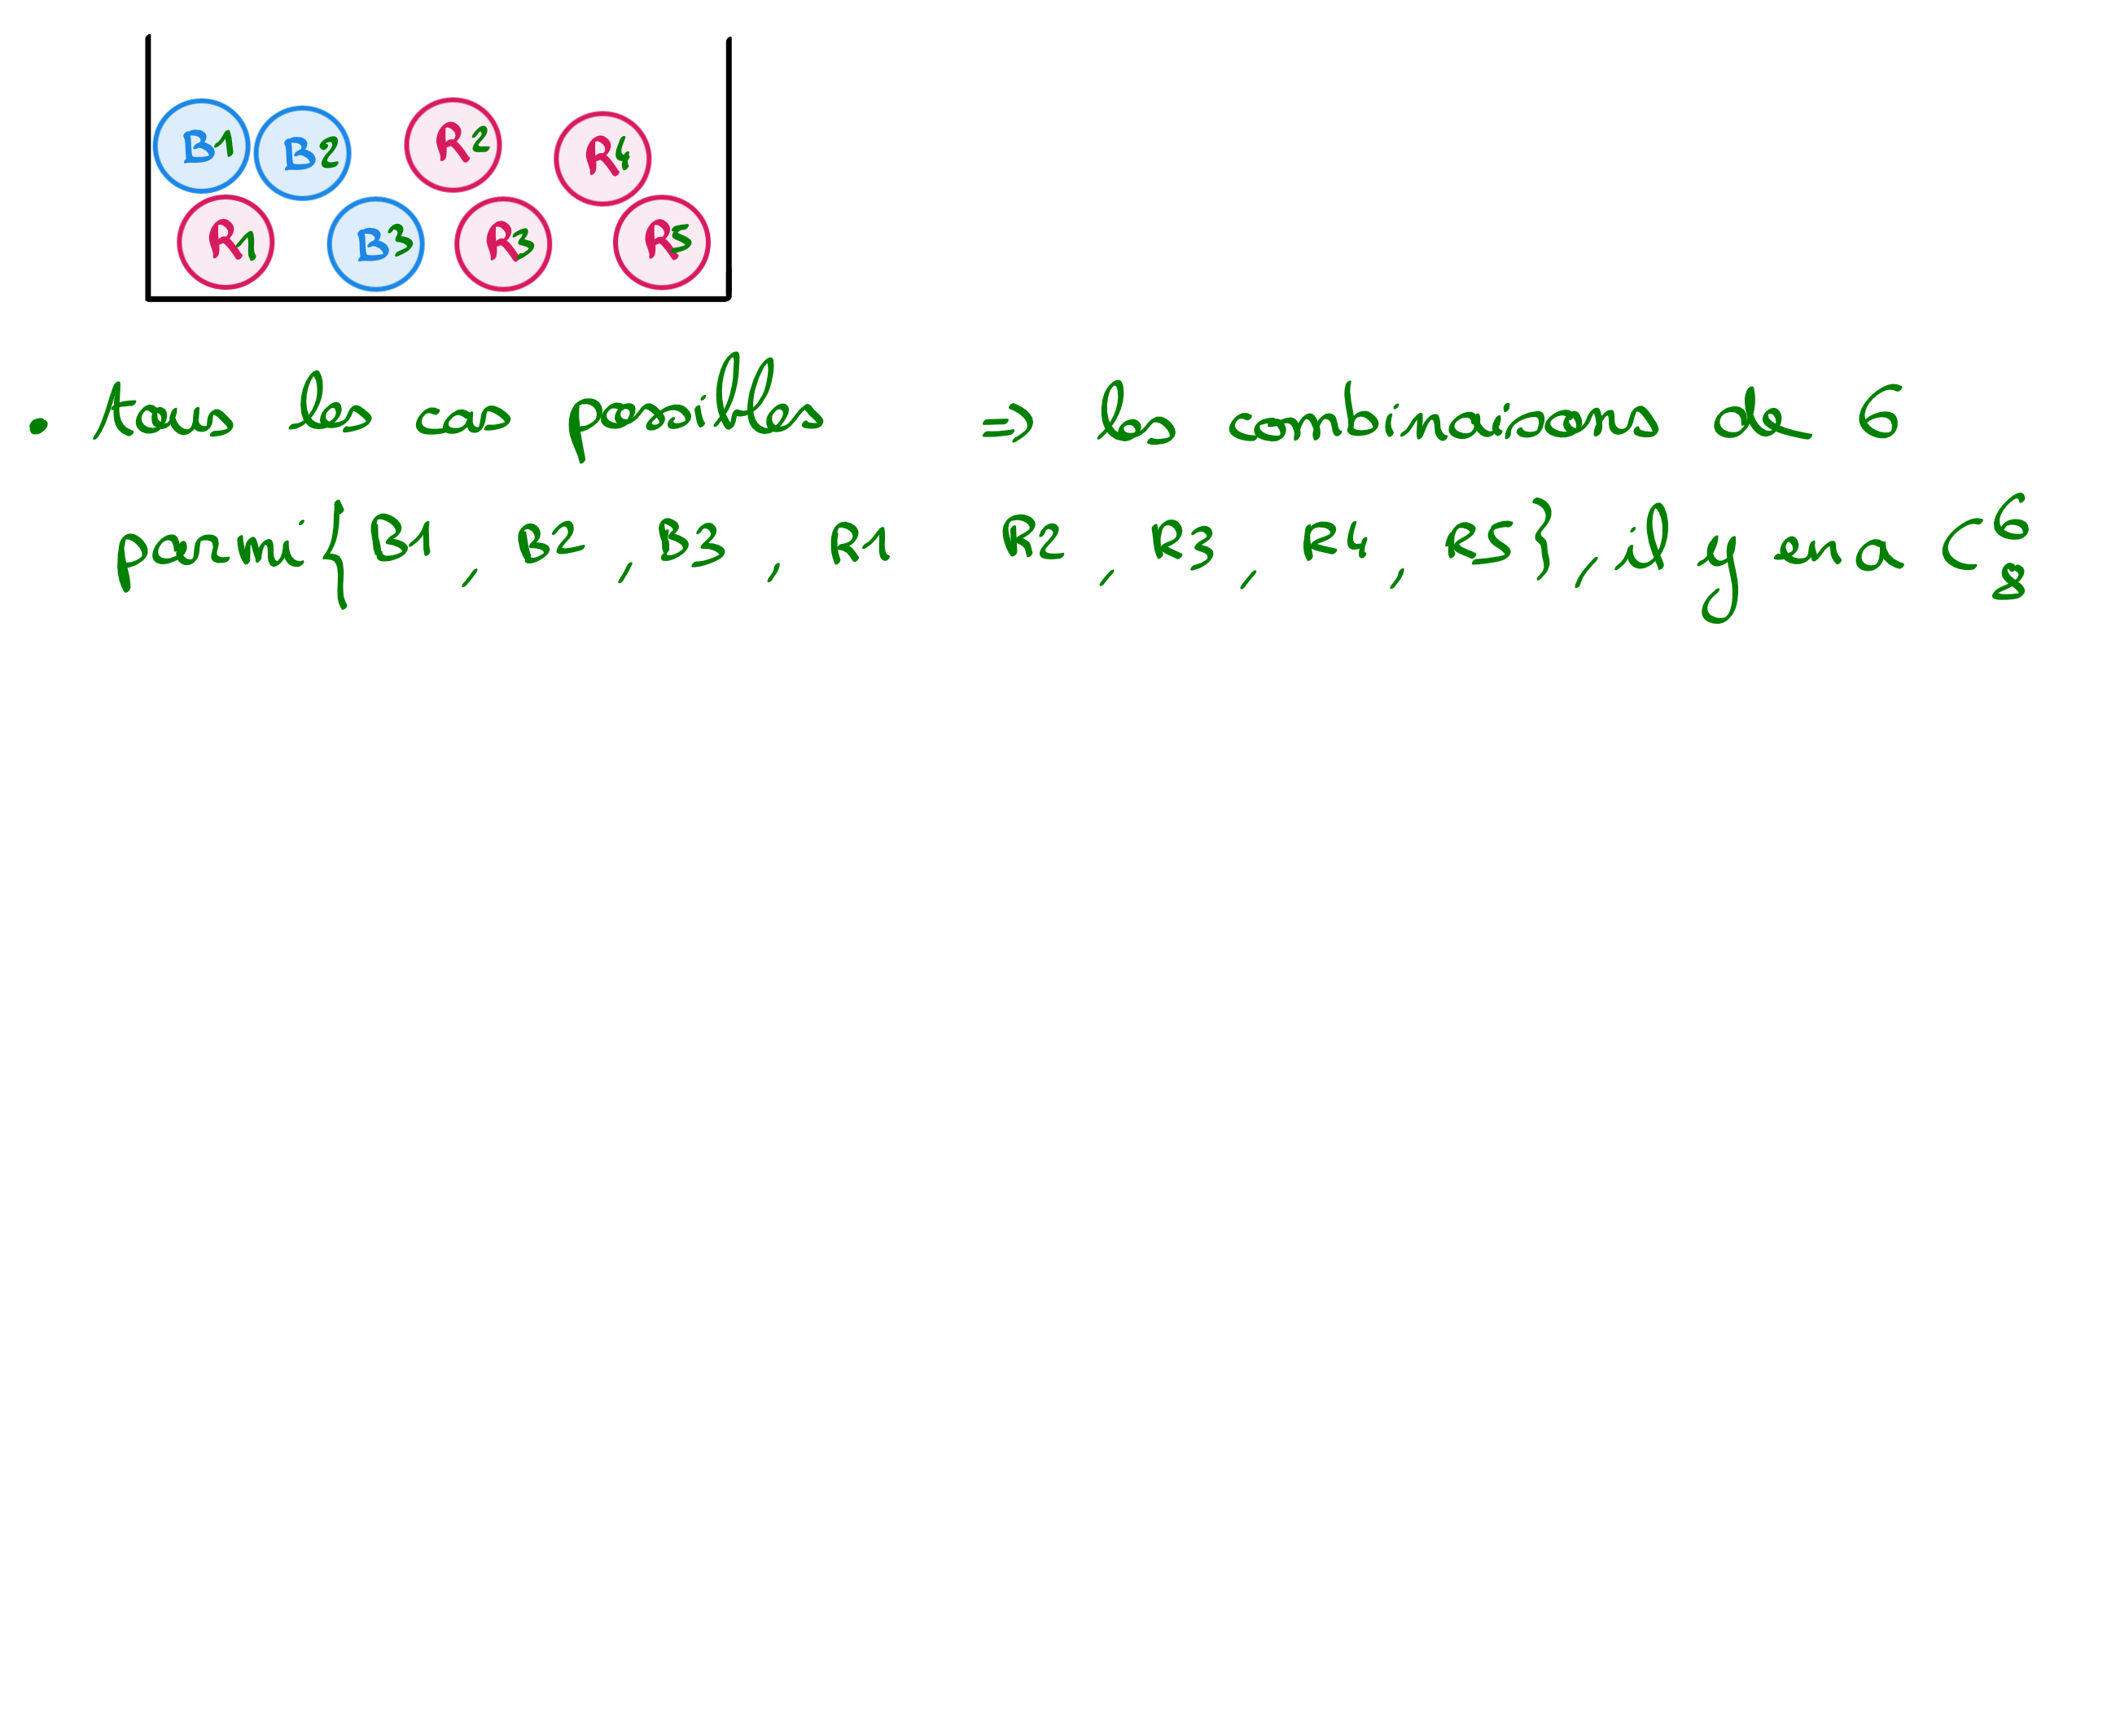 B1 B2 R2 R4
R1 B3 R3 R5
• tous les cas possibles => les combinaisons de 6
parmi { B1, B2, B3, R1 R2, R3, R4, R5}, il y en a C⁶₈